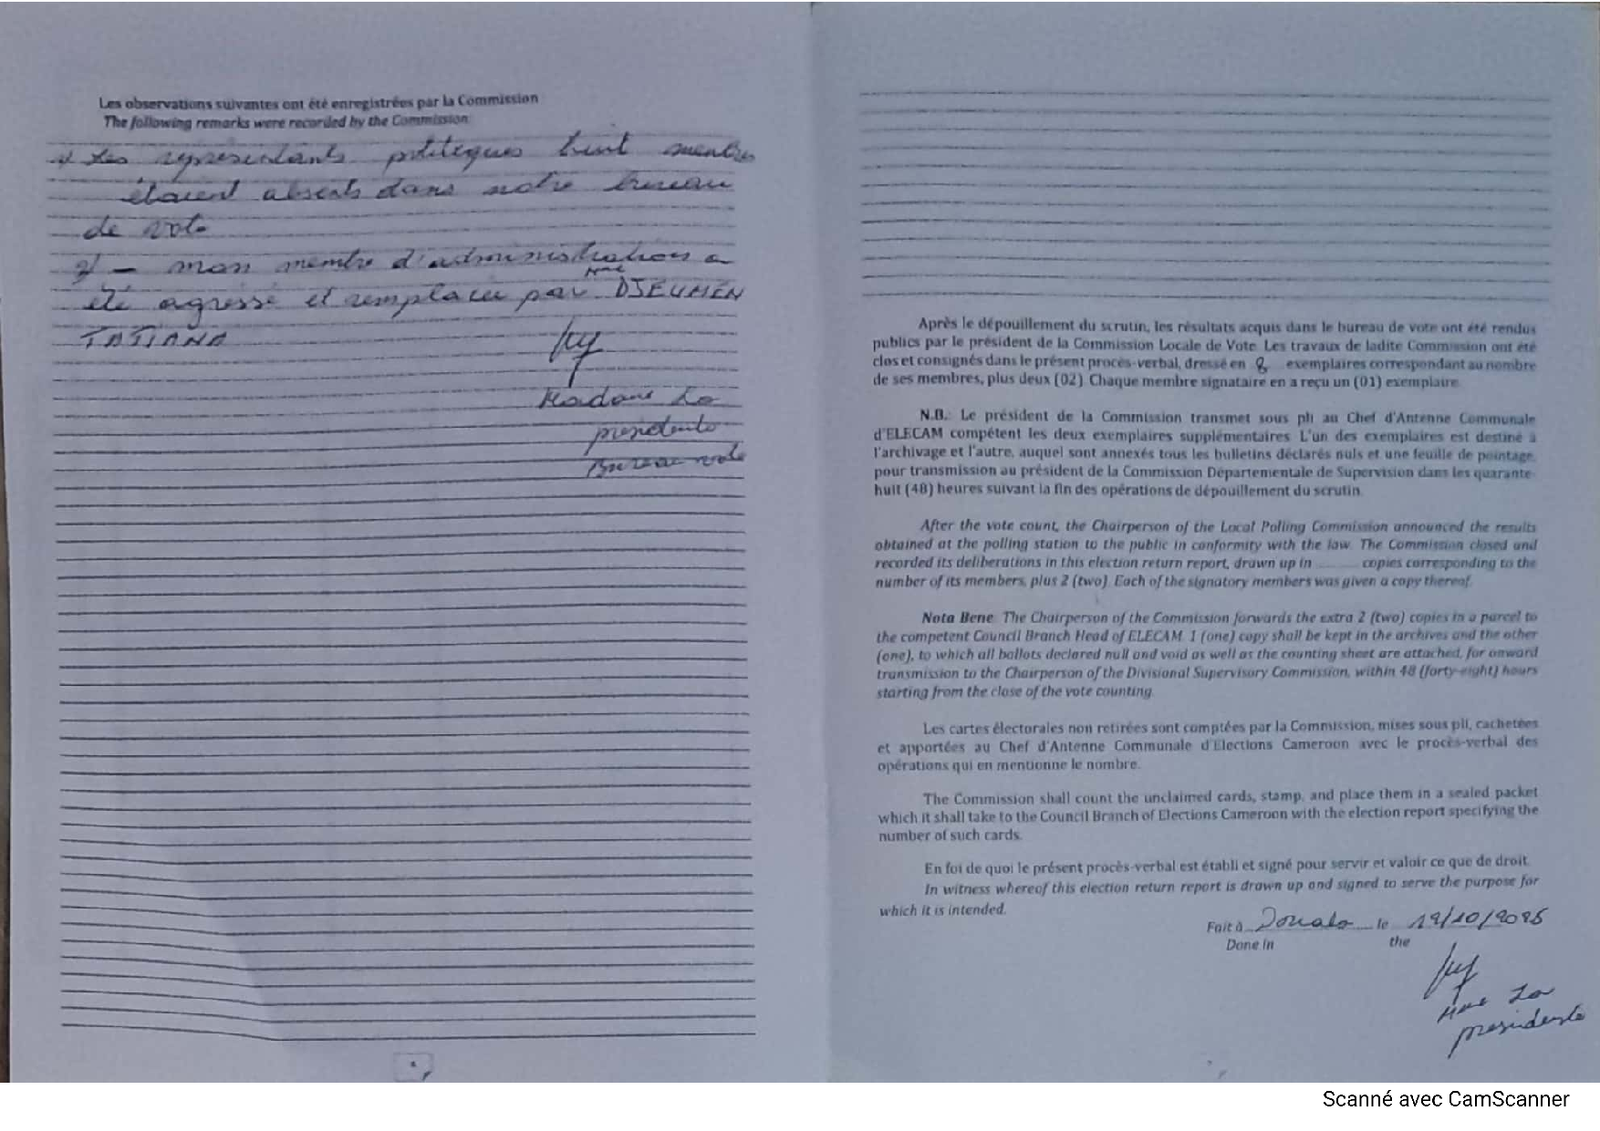 Les observations suivantes ont été enregistrées par la Commission
The following remarks were recorded by the Commission
Les représentants politiques
étaient absents dans notre bureau
de vote
2) - mon membre d'administration a
été agressé et remplacer par Mme DJEUMEN
TATIANA
Madame La
presidente
Bureau vote
Après le dépouillement du scrutin, les résultats acquis dans le bureau de vote ont été rendus
publics par le président de la Commission Locale de Vote. Les travaux de ladite Commission ont été
clos et consignés dans le présent procès-verbal, dressé en 8 exemplaires correspondant au nombre
de ses membres, plus deux (02). Chaque membre signataire en a reçu un (01) exemplaire.
N.B.: Le président de la Commission transmet sous pli au Chef d'Antenne Communale
d'ELECAM compétent les deux exemplaires supplémentaires. L'un des exemplaires est destiné à
l'archivage et l'autre, auquel sont annexés tous les bulletins déclarés nuls et une feuille de pointage,
pour transmission au président de la Commission Départementale de Supervision dans les quarante-
huit (48) heures suivant la fin des opérations de dépouillement du scrutin.
After the vote count, the Chairperson of the Local Polling Commission announced the results
obtained at the polling station to the public in conformity with the law. The Commission closed and
recorded its deliberations in this election return report, drawn up in ........ copies corresponding to the
number of its members, plus 2 (two). Each of the signatory members was given a copy thereof.
Nota Bene: The Chairperson of the Commission forwards the extra 2 (two) copies in a parcel to
the competent Council Branch Head of ELECAM. 1 (one) copy shall be kept in the archives and the other
(one), to which all ballots declared null and void as well as the counting sheet are attached, for onward
transmission to the Chairperson of the Divisional Supervisory Commission, within 48 (forty-eight) hours
starting from the close of the vote counting.
Les cartes électorales non retirées sont comptées par la Commission, mises sous pli, cachetées
et apportées au Chef d'Antenne Communale d'Elections Cameroon avec le procès-verbal des
opérations qui en mentionne le nombre.
The Commission shall count the unclaimed cards, stamp, and place them in a sealed packet
which it shall take to the Council Branch of Elections Cameroon with the election report specifying the
number of such cards.
En foi de quoi le présent procès-verbal est établi et signé pour servir et valoir ce que de droit.
In witness whereof this election return report is drawn up and signed to serve the purpose for
which it is intended.
Fait à Douala le 12/10/2025
Done in the
Mme La
presidente
Scanné avec CamScanner